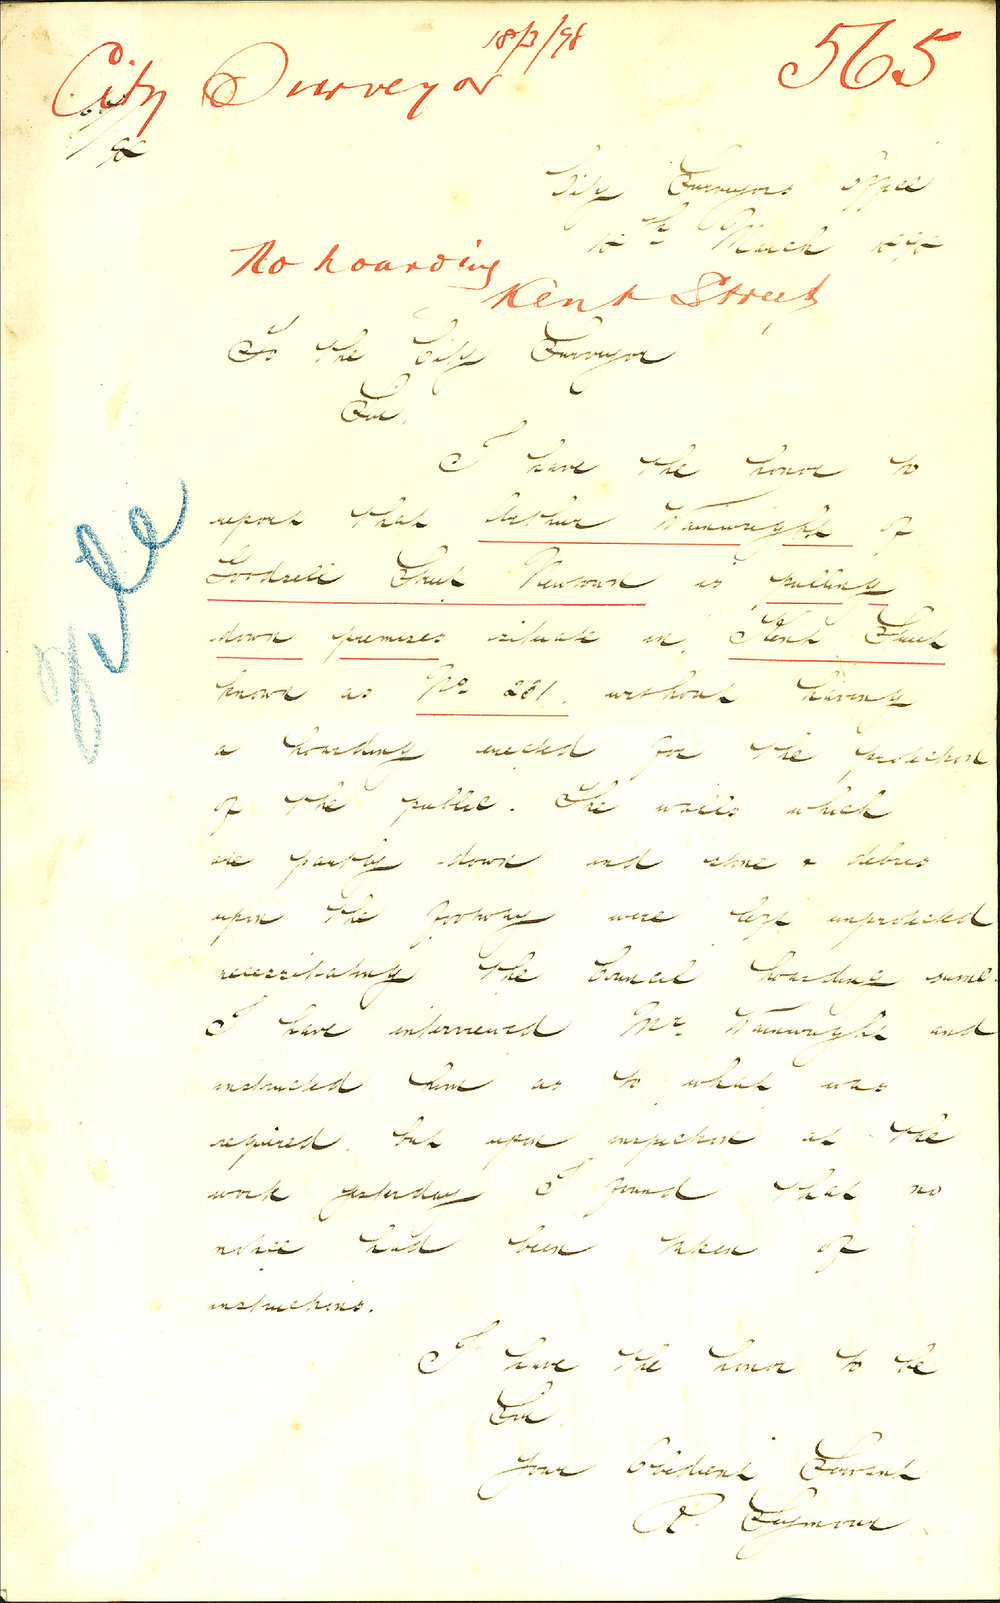 18/3/98
565
City Surveyor
98
City Surveyors Office
18th March 1898
No hoarding
Kent Street
To the City Surveyor
Sir,
I have the honor to
report that Arthur Wainwright of
Goodsell Street Newtown is pulling
down premises situate in Kent Street
known as No 231, without having
a hoarding erected for the protection
of the public. The walls which
are partly down and stone & debris
upon the footway were left unprotected
necessitating the Council hoarding same.
I have interviewed Mr Wainwright and
instructed him as to what was
required, but upon inspection at the
work yesterday I found that no
notice had been taken of
instructions.
I have the honor to be
Sir,
Your Obedient Servant
R. Seymour